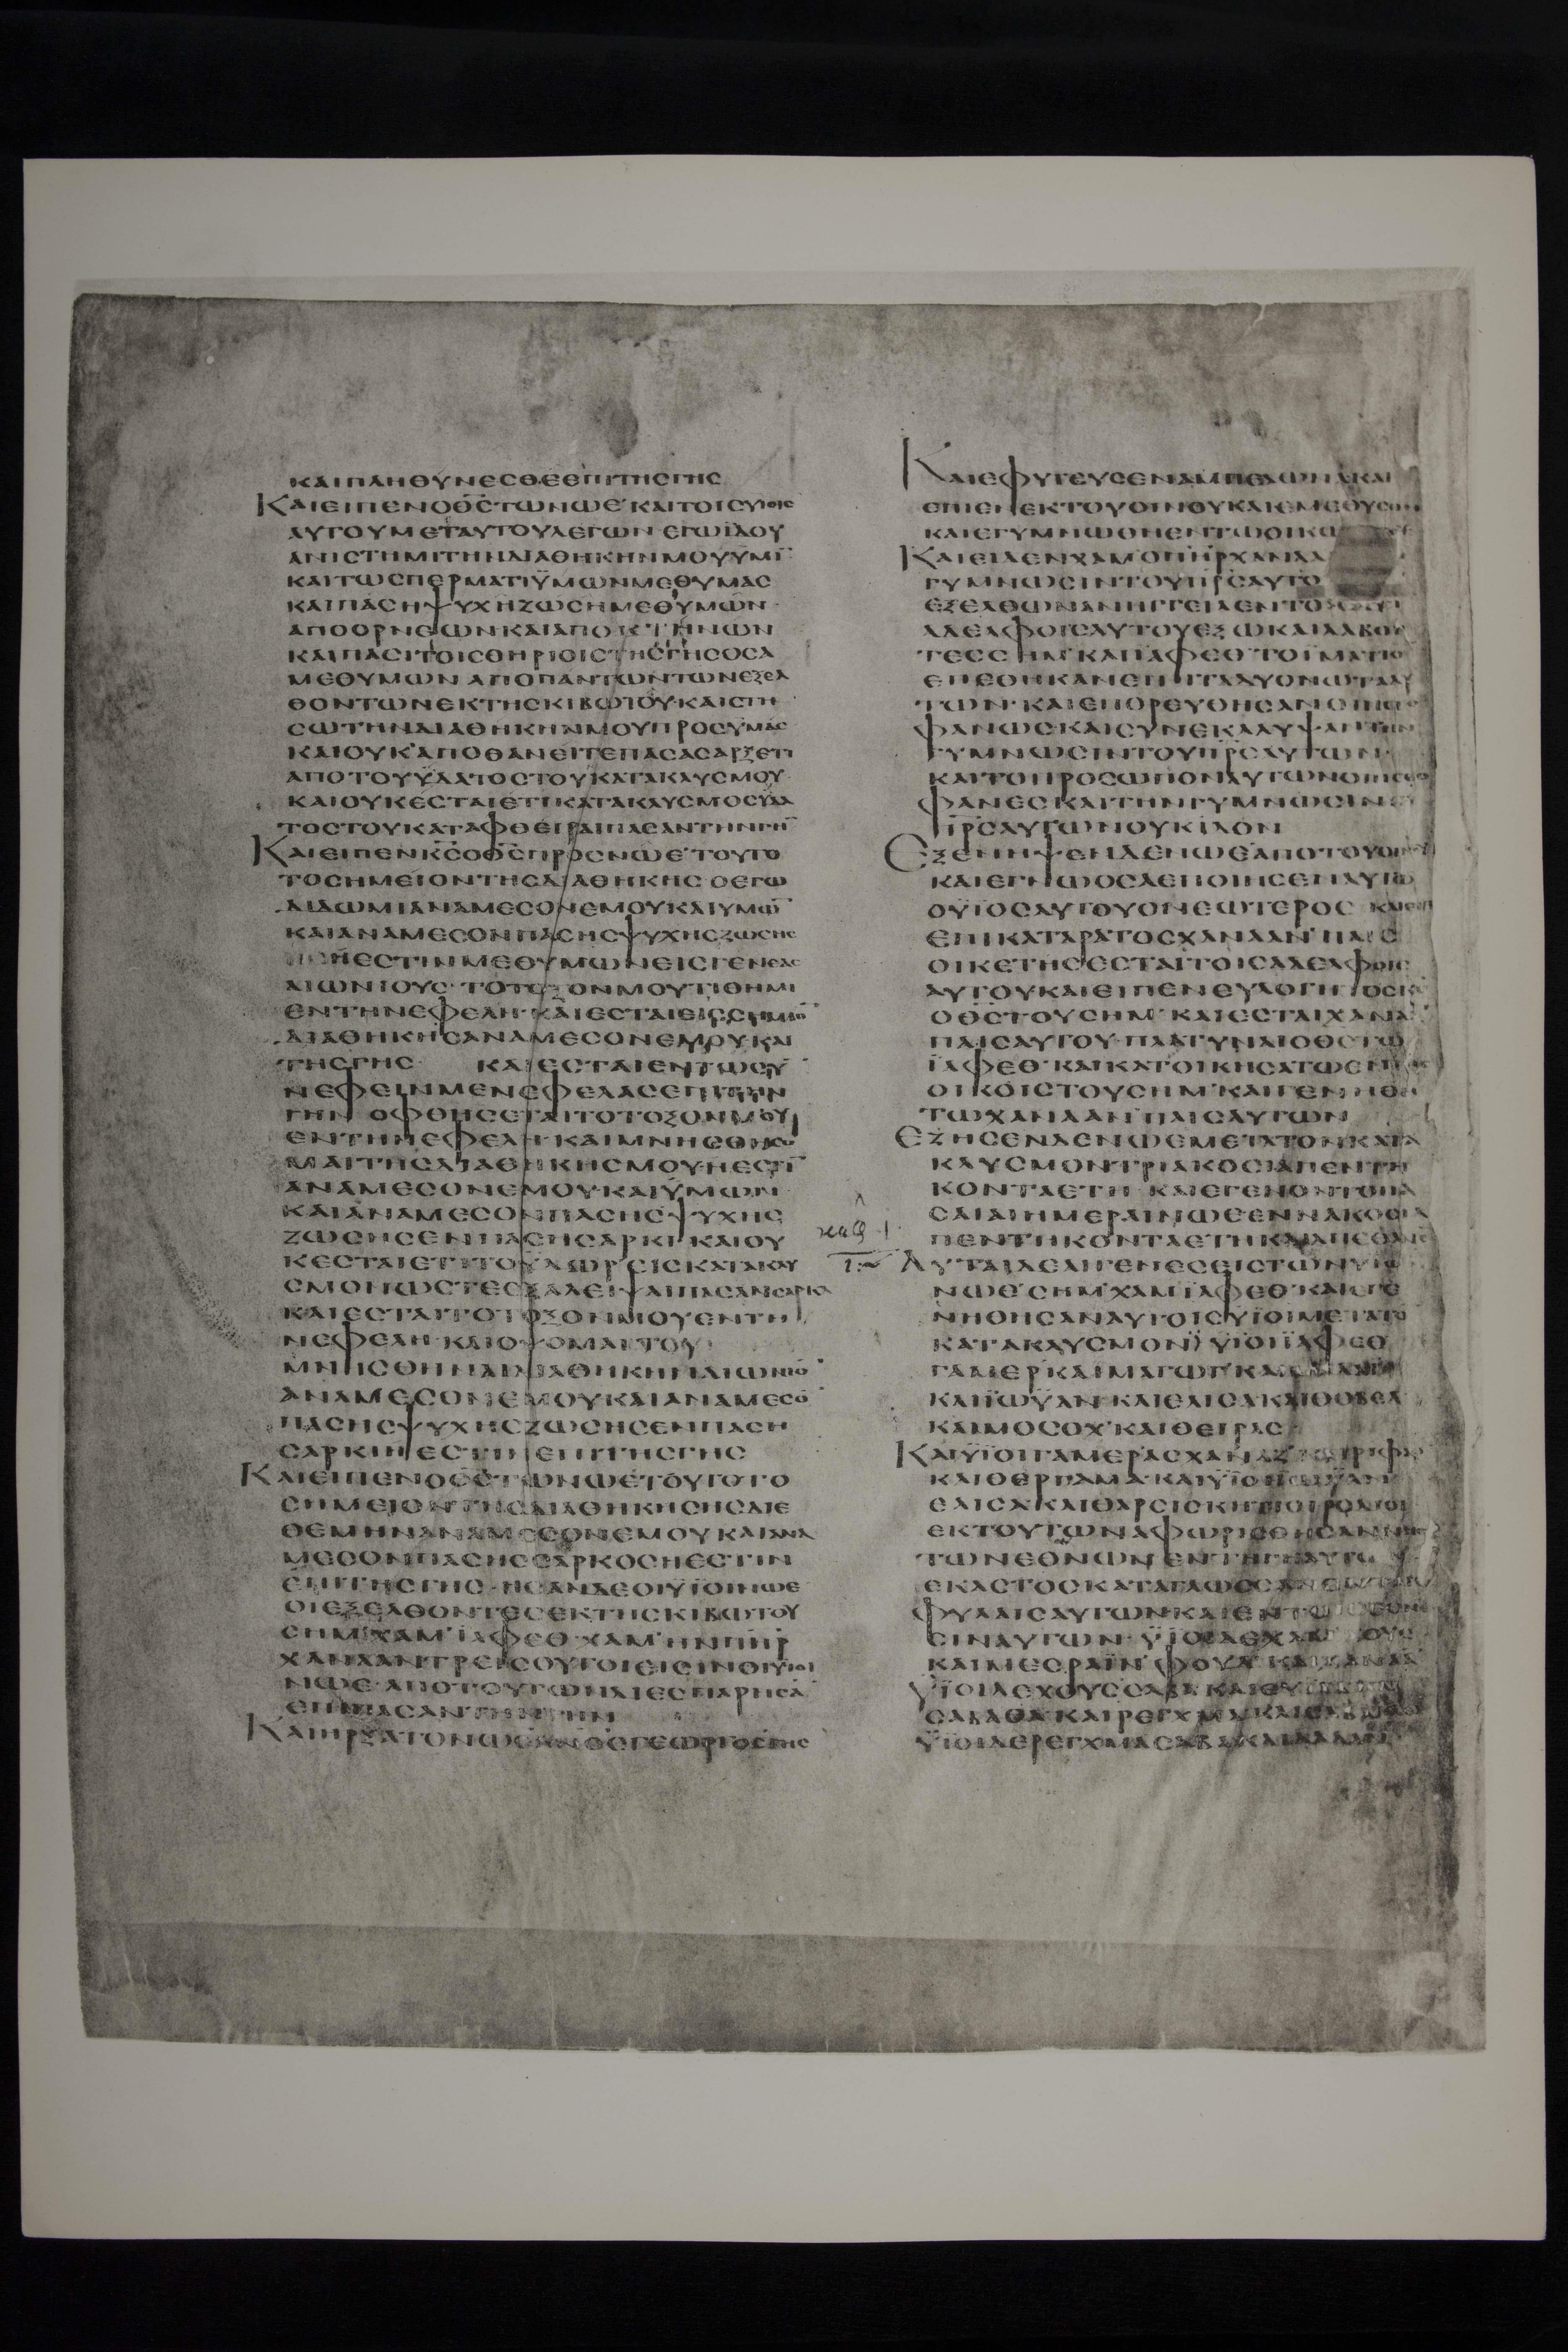 ΚΑΙΠΛΗΘΥΝΕΣΘΕΕΠΙΤΗΣΓΗΣ
ΚΑΙΕΙΠΕΝΟΘΣΤΩΝΩΕΚΑΙΤΟΙΣΥΙΟΙΣ
ΑΥΤΟΥΜΕΤΑΥΤΟΥΛΕΓΩΝΕΓΩΪΔΟΥ
ΑΝΙΣΤΗΜΙΤΗΝΔΙΑΘΗΚΗΝΜΟΥΫΜΙ̅
ΚΑΙΤΩΣΠΕΡΜΑΤΙΫΜΩΝΜΕΘΥΜΑΣ
ΚΑΙΠΑΣΗΨΥΧΗΖΩΣΗΜΕΘΥΜΩΝ
ΑΠΟΟΡΝΕΩΝΚΑΙΑΠΟΚΤΗΝΩΝ
ΚΑΙΠΑΣΙΤΟΙΣΘΗΡΙΟΙΣΤΗΣΓΗΣΟΣΑ
ΜΕΘΥΜΩΝΑΠΟΠΑΝΤΩΝΤΩΝΕΞΕΛ
ΘΟΝΤΩΝΕΚΤΗΣΚΙΒΩΤΟΥ·ΚΑΙΣΤΗ
ΣΩΤΗΝΔΙΑΘΗΚΗΝΜΟΥΠΡΟΣΥΜΑΣ
ΚΑΙΟΥΚΑΠΟΘΑΝΕΙΤΕΠΑΣΑΣΑΡΞΕΤΙ
ΑΠΟΤΟΥΫΔΑΤΟΣΤΟΥΚΑΤΑΚΛΥΣΜΟΥ
ΚΑΙΟΥΚΕΣΤΑΙΕΤΙΚΑΤΑΚΛΥΣΜΟΣΥΔΑ
ΤΟΣΤΟΥΚΑΤΑΦΘΕΙΡΑΙΠΑΣΑΝΤΗΝΓΗ̅
ΚΑΙΕΙΠΕΝΚΣΟΘΣΠΡΟΣΝΩΕΤΟΥΤΟ
ΤΟΣΗΜΕΙΟΝΤΗΣΔΙΑΘΗΚΗΣΟΕΓΩ
ΔΙΔΩΜΙΑΝΑΜΕΣΟΝΕΜΟΥΚΑΙΥΜΩ̅
ΚΑΙΑΝΑΜΕΣΟΝΠΑΣΗΣΨΥΧΗΣΖΩΣΗΣ
ΗΕΣΤΙΝΜΕΘΥΜΩΝΕΙΣΓΕΝΕΑΣ
ΑΙΩΝΙΟΥΣ·ΤΟΤΟΞΟΝΜΟΥΤΙΘΗΜΙ
ΕΝΤΗΝΕΦΕΛΗ·ΚΑΙΕΣΤΑΙΕΙΣΣΗΜΙΟ̅
ΔΙΑΘΗΚΗΣΑΝΑΜΕΣΟΝΕΜΟΥΚΑΙ
ΤΗΣΓΗΣ ΚΑΙΕΣΤΑΙΕΝΤΩΣΥ̅
ΝΕΦΕΙΝΜΕΝΕΦΕΛΑΣΕΠΙΤΗΝ
ΓΗΝΟΦΘΗΣΕΤΑΙΤΟΤΟΞΟΝΜΟΥ
ΕΝΤΗΝΕΦΕΛΗ·ΚΑΙΜΝΗΣΘΗΣΟ
ΜΑΙΤΗΣΔΙΑΘΗΚΗΣΜΟΥ·ΗΕΣΤΙ̅
ΑΝΑΜΕΣΟΝΕΜΟΥΚΑΙΫΜΩΝ
ΚΑΙΑΝΑΜΕΣΟΝΠΑΣΗΣΨΥΧΗΣ
ΖΩΣΗΣΕΝΠΑΣΗΣΑΡΚΙ·ΚΑΙΟΥ
ΚΕΣΤΑΙΕΤΙΤΟΫΔΩΡΕΙΣΚΑΤΑΚΛΥ
ΣΜΟΝΩΣΤΕΕΞΑΛΕΙΨΑΙΠΑΣΑΝΣΑΡΚΑ
ΚΑΙΕΣΤΑΙΤΟΤΟΞΟΝΜΟΥΕΝΤΗ
ΝΕΦΕΛΗ·ΚΑΙΟΨΟΜΑΙΤΟΥ
ΜΝΗΣΘΗΝΑΙΔΙΑΘΗΚΗΝΑΙΩΝΙΟ̅
ΑΝΑΜΕΣΟΝΕΜΟΥΚΑΙΑΝΑΜΕΣΟ̅
ΠΑΣΗΣΨΥΧΗΣΖΩΣΗΣΕΝΠΑΣΗ
ΣΑΡΚΙΗΕΣΤΙΝΕΠΙΤΗΣΓΗΣ
ΚΑΙΕΙΠΕΝΟΘΣΤΩΝΩΕΤΟΥΤΟΤΟ
ΣΗΜΕΙΟΝΤΗΣΔΙΑΘΗΚΗΣΗΣΔΙΕ
ΘΕΜΗΝΑΝΑΜΕΣΟΝΕΜΟΥΚΑΙΑΝΑ
ΜΕΣΟΝΠΑΣΗΣΣΑΡΚΟΣΗΕΣΤΙΝ
ΕΠΙΤΗΣΓΗΣ·ΗΣΑΝΔΕΟΙΫΪΟΙΝΩΕ
ΟΙΕΞΕΛΘΟΝΤΕΣΕΚΤΗΣΚΙΒΩΤΟΥ
ΣΗΜΧΑΜΪΑΦΕΘ·ΧΑΜΗΝΠΗΡ
ΧΑΝΑΑΝΤΡΕΙΣΟΥΤΟΙΕΙΣΙΝΟΙΥΙΟΙ
ΝΩΕ·ΑΠΟΤΟΥΤΩΝΔΙΕΣΠΑΡΗΣΑ̅
ΕΠΙΠΑΣΑΝΤΗΝΓΗΝ
ΚΑΙΗΡΞΑΤΟΝΩΕΑΝΟΣΓΕΩΡΓΟΣΓΗΣ
ΚΑΙΕΦΥΤΕΥΣΕΝΑΜΠΕΛΩΝΑΚΑΙ
ΕΠΙΕΝΕΚΤΟΥΟΙΝΟΥΚΑΙΕΜΕΘΥΣΘΗ
ΚΑΙΕΓΥΜΝΩΘΗΕΝΤΩΟΙΚΩ
ΚΑΙΕΙΔΕΝΧΑΜΟΠΗΡΧΑΝΑΑ
ΓΥΜΝΩΣΙΝΤΟΥΠΡΣΑΥΤΟ
ΕΞΕΛΘΩΝΑΝΗΓΓΕΙΛΕΝΤΟ
ΑΔΕΛΦΟΙΣΑΥΤΟΥΕΞΩΚΑΙΛΑΒΟΝ
ΤΕΣΣΗΜΚΑΙΪΑΦΕΘΤΟΪΜΑΤΙΟ
ΕΠΕΘΗΚΑΝΕΠΙΤΑΔΥΟΝΩΤΑΑΥ
ΤΩΝ·ΚΑΙΕΠΟΡΕΥΘΗΣΑΝΟΠΙΣΘΟ
ΦΑΝΩΣΚΑΙΣΥΝΕΚΑΛΥΨΑΝΤΗΝ
ΓΥΜΝΩΣΙΝΤΟΥΠΡΣΑΥΤΩΝ·
ΚΑΙΤΟΠΡΟΣΩΠΟΝΑΥΤΩΝΟΠΙΣΘΟ
ΦΑΝΕΣΚΑΙΤΗΝΓΥΜΝΩΣΙΝ
ΠΡΣΑΥΤΩΝΟΥΚΙΔΟΝ
ΕΞΕΝΗΨΕΝΔΕΝΩΕΑΠΟΤΟΥΟΙΝΟΥ
ΚΑΙΕΓΝΩΟΣΑΕΠΟΙΗΣΕΝΑΥΤΩ
ΟΫΪΟΣΑΥΤΟΥΟΝΕΩΤΕΡΟΣ ΚΑΙΕΙΠ
ΕΠΙΚΑΤΑΡΑΤΟΣΧΑΝΑΑΝΠΑΙΣ
ΟΙΚΕΤΗΣΕΣΤΑΙΤΟΙΣΑΔΕΛΦΟΙΣ
ΑΥΤΟΥΚΑΙΕΙΠΕΝΕΥΛΟΓΗΤΟΣΚΣ
ΟΘΣΤΟΥΣΗΜ·ΚΑΙΕΣΤΑΙΧΑΝΑ
ΠΑΙΣΑΥΤΟΥ·ΠΛΑΤΥΝΑΙΟΘΣΤΩ
ΪΑΦΕΘ·ΚΑΙΚΑΤΟΙΚΗΣΑΤΩΕΝ
ΟΙΚΟΙΣΤΟΥΣΗΜ·ΚΑΙΓΕΝΗΘΗ
ΤΩΧΑΝΑΑΝΠΑΙΣΑΥΤΩΝ
ΕΖΗΣΕΝΔΕΝΩΕΜΕΤΑΤΟΝΚΑΤΑ
ΚΛΥΣΜΟΝΤΡΙΑΚΟΣΙΑΠΕΝΤΗ
ΚΟΝΤΑΕΤΗ·ΚΑΙΕΓΕΝΟΝΤΟΠΑ
ΣΑΙΑΙΗΜΕΡΑΙΝΩΕΕΝΝΑΚΟΣΙΑ
ΠΕΝΤΗΚΟΝΤΑΕΤΗΚΑΙΑΠΕΘΑΝΕ
ΑΥΤΑΙΔΕΑΙΓΕΝΕΣΕΙΣΤΩΝΥΙΩ
ΝΩΕΣΗΜΧΑΜΪΑΦΕΘ·ΚΑΙΕΓΕ
ΝΗΘΗΣΑΝΑΥΤΟΙΣΥΪΟΙΜΕΤΑΤΟ
ΚΑΤΑΚΛΥΣΜΟΝ·ΥΪΟΙΪΑΦΕΘ
ΓΑΜΕΡΚΑΙΜΑΓΩΓΚΑΙ
ΚΑΙΪΩΫΑΝ·ΚΑΙΕΛΙΣΑ·ΚΑΙΘΟΒΕΛ
ΚΑΙΜΟΣΟΧ·ΚΑΙΘΕΙΡΑΣ
ΚΑΙΫΪΟΙΓΑΜΕΡΑΣΧΑΝΑΖ
ΚΑΙΘΕΡΓΑΜΑ·ΚΑΙΫΪΟΙΪΩΫΑΝ
ΕΛΙΣΑ·ΚΑΙΘΑΡΣΙΣΚΗΤΙΟΙΡΟΔΙΟΙ
ΕΚΤΟΥΤΩΝΑΦΩΡΙΣΘΗΣΑΝΝΗΣΟΙ
ΤΩΝΕΘΝΩΝΕΝΤΗΓΗΑΥΤΩ
ΕΚΑΣΤΟΣΚΑΤΑΓΛΩΣΣΑΝΕΝΤΑΙΣ
ΦΥΛΑΙΣΑΥΤΩΝΚΑΙΕΝΤΟΙΣΕΘΝΕ
ΣΙΝΑΥΤΩΝ·ΫΪΟΙΔΕΧΑΜ
ΚΑΙΜΕΣΡΑΪΝ·ΦΟΥΔ·ΚΑΙΧΑΝΑΑ
ΥΪΟΙΔΕΧΟΥΣΣΑΒΑ·ΚΑΙΕΥ
ΣΑΒΑΘΑ·ΚΑΙΡΕΓΧΜΑ·ΚΑΙ
ΫΪΟΙΔΕΡΕΓΧΜΑΣΑΒΑ·ΚΑΙΔΑΔΑΝ